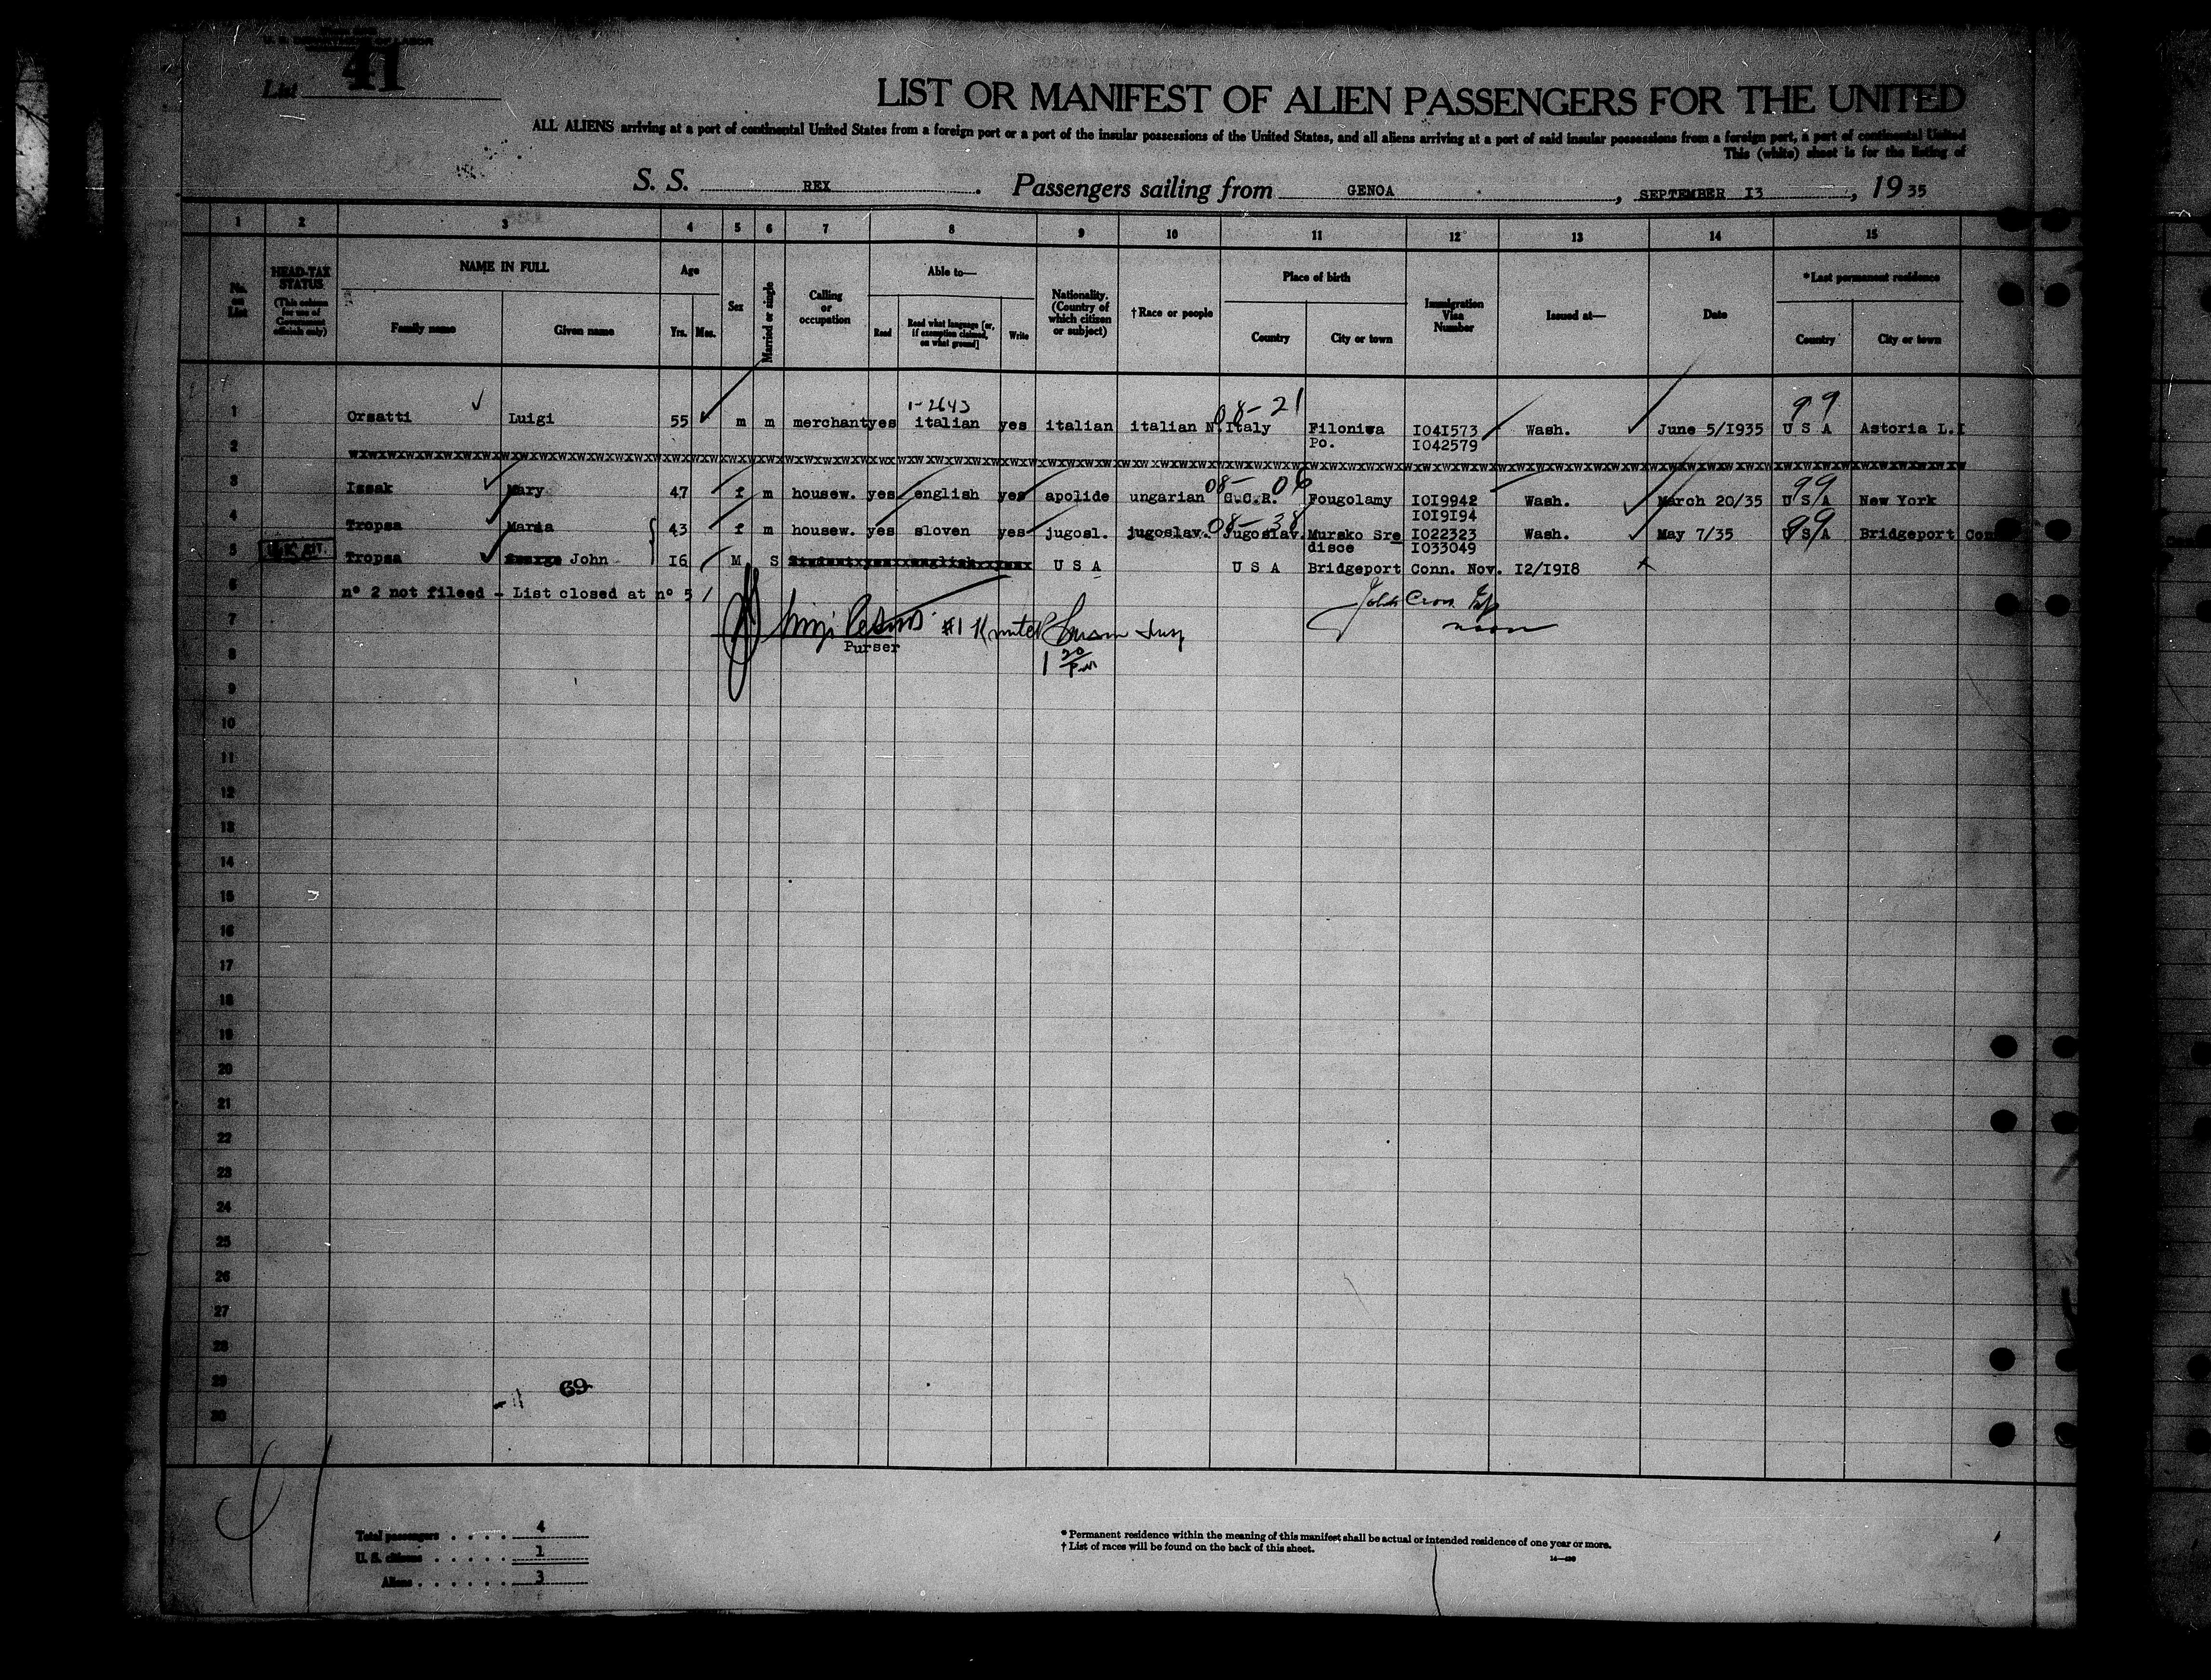 U. S. DEPARTMENT OF LABOR
List 41
LIST OR MANIFEST OF ALIEN PASSENGERS FOR THE UNITED
ALL ALIENS arriving at a port of continental United States from a foreign port or a port of the insular possessions of the United States, and all aliens arriving at a port of said insular possessions from a foreign port, a port of continental United
This (white) sheet is for the listing of
S. S. REX. Passengers sailing from GENOA, SEPTEMBER I3, 1935
1 2 3 4 5 6 7 8 9 10 11 12 13 14 15
No. on List
HEAD-TAX STATUS (This column for use of Government officials only)
NAME IN FULL
Family name Given name
Age
Yrs. Mos.
Sex
Married or single
Calling or occupation
Able to—
Read Read what language [or, if exemption claimed, on what ground] Write
Nationality. (Country of which citizen or subject)
†Race or people
Place of birth
Country City or town
Immigration Visa Number
Issued at—
Date
*Last permanent residence
Country City or town
1-2643 08-21 99
1 Orsatti Luigi 55 m m merchant yes italian yes italian italian N. Italy Filoniwa I04I573 Wash. June 5/I935 U S A Astoria L.I
Po. I042579
2 wxwxwxwxwxwxwxwxwxwxwxwxwxwxwxwxwxwxwxwxwxwxwxwxwxwxwxwxwxwxwxwx
08-06 99
3 Issak Mary 47 f m housew. yes english yes apolide ungarian C.C.R. Fougolamy I0I9942 Wash. March 20/35 U S A New York
I0I9I94
08-38 99
4 Tropsa Maria 43 f m housew. yes sloven yes jugosl. jugoslav. Jugoslav. Mursko Sre I022323 Wash. May 7/35 U S A Bridgeport Con
disce I033049
5 Tropsa George John I6 M S Student yes english yes U S A U S A Bridgeport Conn. Nov. I2/I9I8
6 n° 2 not fileed - List closed at n° 5 /
7 #1
Purser
8 1 20 PM
9
10
11
12
13
14
15
16
17
18
19
20
21
22
23
24
25
26
27
28
29
30
69
Total passengers . . . . 4
U. S. citizens . . . . . 1
Aliens . . . . . . 3
* Permanent residence within the meaning of this manifest shall be actual or intended residence of one year or more.
† List of races will be found on the back of this sheet.